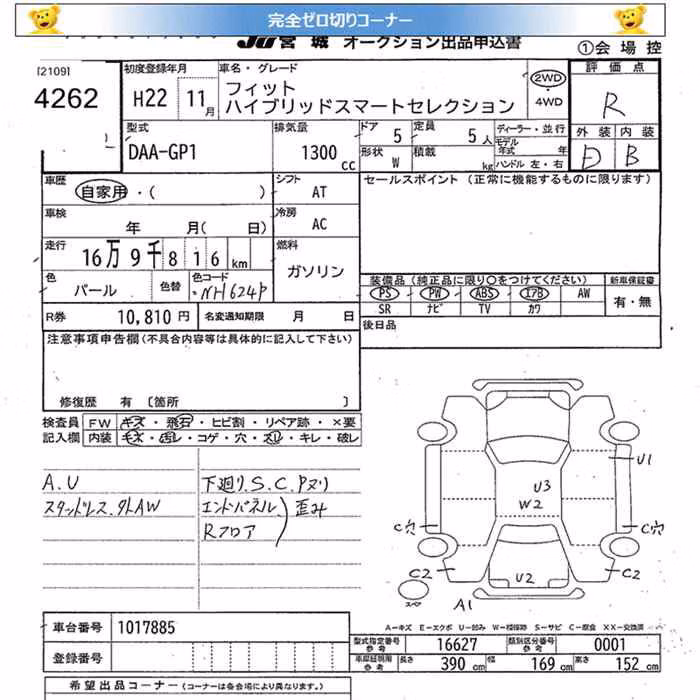 完全ゼロ切りコーナー
JU宮城 オークション出品申込書
①会場控
[2109]
4262
初度登録年月
H22 11月
車名・グレード
フィット
ハイブリッドスマートセレクション
2WD
・
4WD
評価点
R
外装 内装
D B
型式
DAA-GP1
排気量
1300 cc
ドア 5
定員 5人
形状 W
積載 kg
ディーラー・並行
モデル年式 年
ハンドル 左・右
車歴
自家用・( )
シフト
AT
セールスポイント (正常に機能するものに限ります)
車検
年 月( 日)
冷房
AC
走行
16万9千816km
燃料
ガソリン
色
パール
色替
色コード
NH624P
装備品 (純正品に限り○をつけてください)
新車保証書
PS PW ABS エアB AW
SR ナビ TV カワ
有・無
R券 10,810円
名変通知期限 月 日
後日品
注意事項申告欄(不具合内容等は具体的に記入して下さい)
修復歴 有 〔箇所 〕
検査員 FW キズ・飛石・ヒビ割・リペア跡・×要
記入欄 内装 キズ・汚レ・コゲ・穴・スレ・キレ・破レ
A.U
スタッドレス.外AW
下廻り.S.C.Pヌリ
エンドパネル
Rフロア
歪み
U1
U3
W2
C穴
C穴
C2
C2
U2
スペア
A1
A−キズ E−エクボ U−凹み W−補修跡 S−サビ C−腐食 XX−交換済
車台番号 1017885
登録番号
型式指定番号 参考 16627
類別区分番号 参考 0001
車庫証明用 参考 長さ 390cm 幅 169cm 高さ 152cm
希望出品コーナー (コーナーは各会場により異なります。)